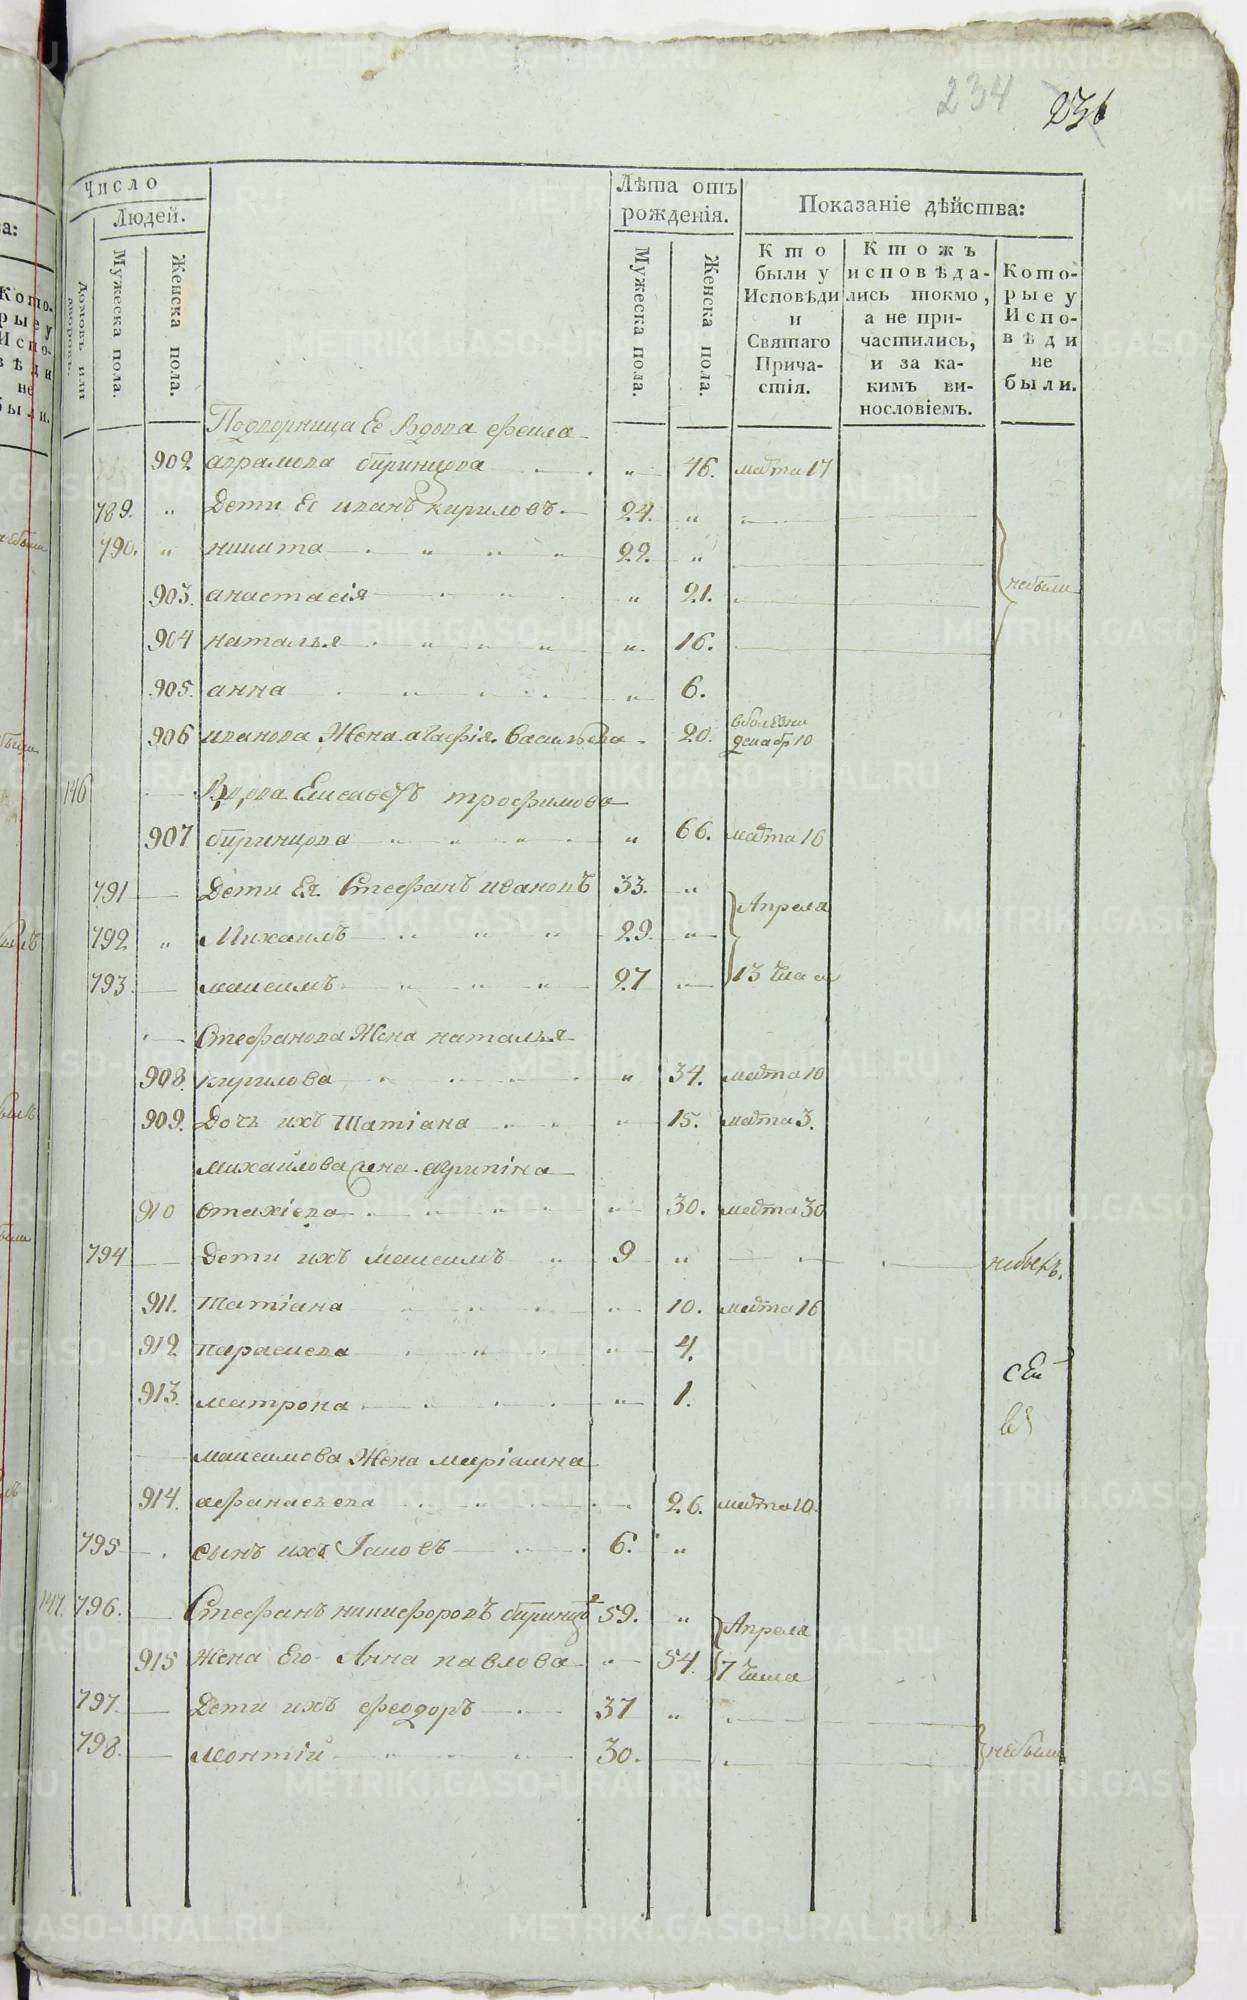 234
236
Число
Людей.
Домовъ или дворовъ.
Мужеска пола.
Женска пола.
Лѣта отъ рожденія.
Мужеска пола.
Женска пола.
Показаніе дѣйства:
Кто были у Исповѣди и Святаго Причастія.
Ктожъ исповѣдались токмо, а не причастились, и за какимъ винословіемъ.
Которые у Исповѣди не были.
Ее Вдова
902 аврамова 46. марта 17
789. " Дети Ее иванъ кириловъ 24. "
790. " никита 22. "
903. анастасія " 21. небыли
904 наталья " 16.
905. анна " 6.
906 иванова Жена агафія Васильева 20. вболезни декабр 10
146 Вдова Елисаветъ трофимова
907 " 66. марта 16
791 Дети Ея Стефанъ ивановъ 33. " Апреля
792 " Михаилъ 29. "
793. максимъ 27 13 числа
Стефанова Жена наталья
908. кирилова " 34. марта 10
909. Дочь ихъ Татіана " 15. марта 3.
михайлова Жена агрипіна
910 " 30. марта 30
794 Дети ихъ максимъ " 9 " небылъ.
911. Татіана " 10. марта 16
912 параскева " 4.
913. матрона " 1.
максимова Жена маріамна
914. афанасьева 26. марта 10.
795 сынъ ихъ Іаковъ 6. "
147. 796. Стефанъ никифоровъ 59. " Апреля
915 Жена Его Анна павлова " 54. 7 числа
797. Дети ихъ феодоръ 37 "
798. леонтій 30. небыли
METRIKI.GASO-URAL.RU